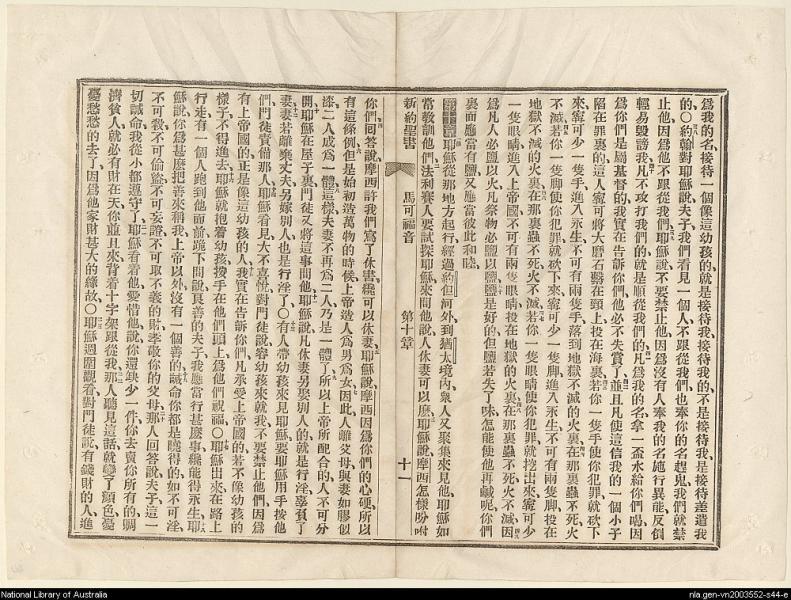 爲我的名、接待一個像這幼孩的、就是接待我、接待我的、不是接待我、是接待差遣我
的、○約翰對耶穌說、夫子、我們看見一個人、不跟從我們、也奉你的名趕鬼、我們就禁
止他、因爲他不跟從我們、耶穌說、不要禁止他、因爲沒有人奉我的名施行異能、反倒
輕易毀謗我、凡不攻打我們的、就是順從我們的、凡爲我的名、拿一盃水給你們喝、因
爲你們是屬基督的、我實在告訴你們、他必不失賞了、並且凡使這信我的一個小子
陷在罪裏的、這人寧可將大磨石懸在頸上、投在海裏、若你一隻手使你犯罪、就砍下
來、寧可少一隻手進入永生、不可有兩隻手落到地獄不滅的火裏、在那裏蟲不死火
不滅、若你一隻脚使你犯罪、就砍下來、寧可少一隻脚進入永生、不可有兩隻脚投在
地獄不滅的火裏、在那裏蟲不死火不滅、若你一隻眼睛使你犯罪、就挖出來、寧可少
一隻眼睛進入上帝國、不可有兩隻眼睛投在地獄的火裏、在那裏蟲不死火不滅、因
爲凡人必鹽以火、凡祭物必鹽以鹽、鹽是好的、但鹽若失了味、怎能使他再鹹呢、你們
裏面應當有鹽、又應當彼此和睦、
耶穌從那地方起行、經過約但河外、到猶太境內、衆人又聚集來見他、耶穌如
常敎訓他們、法利賽人要試探耶穌、來問他說、人休妻可以麽、耶穌說、摩西怎樣吩咐
新約聖書 馬可福音 第十章 十一
你們、回答說、摩西許我們寫了休書、纔可以休妻、耶穌說、摩西因爲你們的心硬、所以
有這條例、但是始初造萬物的時候、上帝造人、爲男爲女、因此人離父母與妻如膠似
漆、二人成爲一體、這樣夫妻不再爲二人、乃是一體了、所以上帝所配合的、人不可分
開、耶穌在屋子裏、門徒又將這事問他、耶穌說、凡休妻另娶別人的、就是行淫、辜負了
妻、妻若離棄丈夫、另嫁別人、也是行淫了、○有人帶幼孩來見耶穌、要耶穌用手按他
們、門徒責備那人、耶穌看見大不喜悅、對門徒說、容幼孩來就我、不要禁止他們、因爲
有上帝國的、正是像這幼孩的人、我實在告訴你們、凡承受上帝國的、若不像幼孩的
樣子、不得進去、耶穌就抱着幼孩、按手在他們頭上、爲他們祝福、○耶穌出來在路上
行走、有一個人跑到他面前、跪下問說、良善的夫子、我應當行甚麽事、纔能得永生、耶
穌說、你爲甚麽把善來稱我、上帝以外、沒有一個善的、誡命你都是曉得的、如不可淫、
不可殺、不可偷盜、不可妄證、不可取不義的財、孝敬你的父母、那人回答說、夫子、這一
切誡命、我從小都遵守了、耶穌看着他、愛惜他說、你還缺少一件、你去賣你所有的、賙
濟貧人、就必有財在天、你並且來背着十字架跟從我、那人聽見這話、就變了顏色、憂
憂愁愁的去了、因爲他家財甚大的緣故、○耶穌週圍觀看、對門徒說、有錢財的人進
National Library of Australia
nla.gen-vn2003552-s44-e